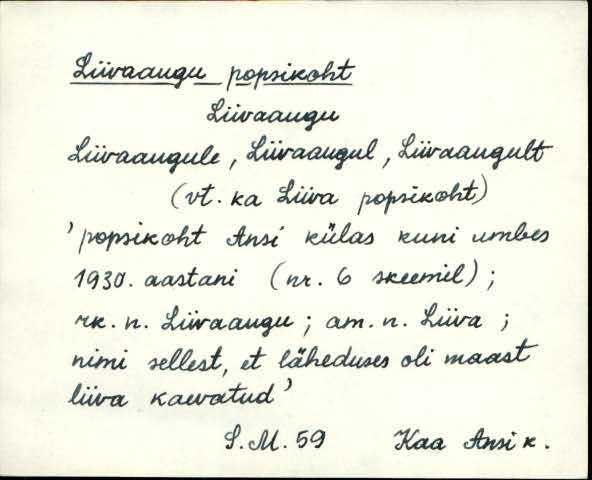 Liivaaugu popsikoht
Liivaaugu
Liivaaugule, Liivaaugul, Liivaaugult
(vt. ka Liiva popsikoht)
'popsikoht Ansi külas kuni umbes
1930. aastani (nr. 6 skeemil);
rk. n. Liivaaugu; am. n. Liiva;
nimi sellest, et läheduses oli maast
liiva kaevatud'
S.M. 59 Kaa Ansi k.